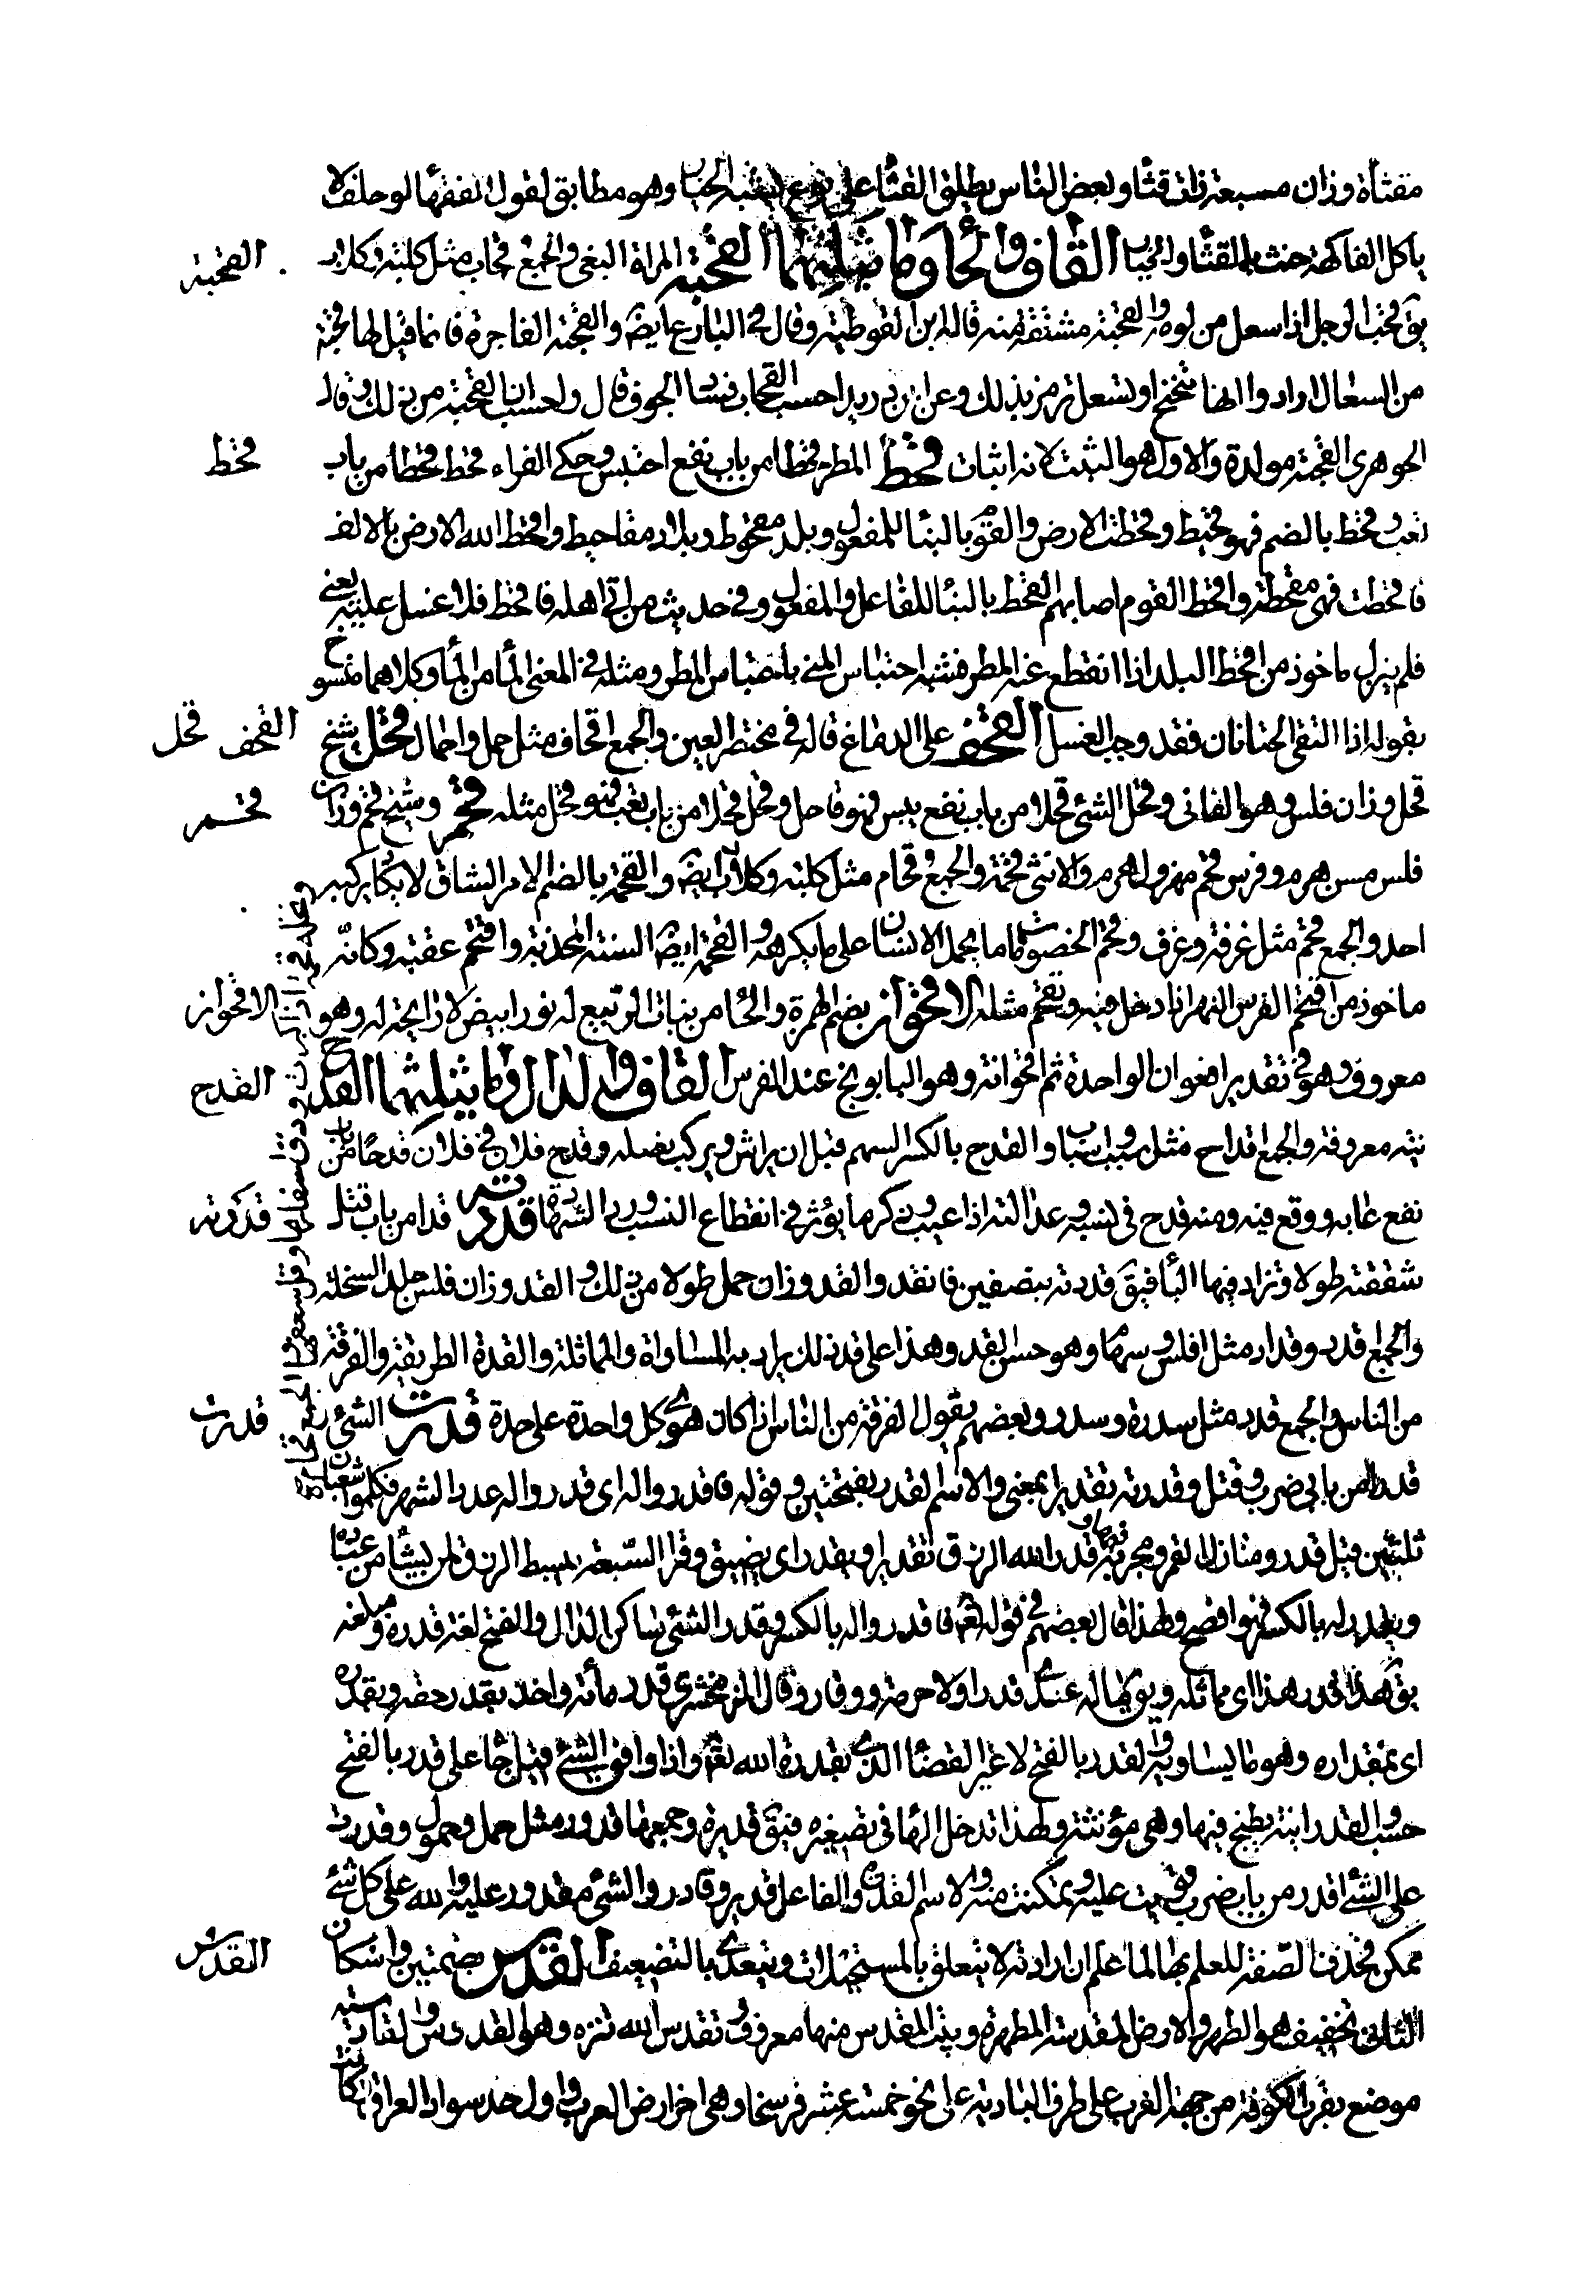 مقثأة وزان مسبعة ذات قثا وبعض الناس يطلق القثا على نوع يشبه الخيار وهو مطابق لقول الفقها لو حلف لا
ياكل الفاكهة حنث بالقثا والخيار القاف والحا وما يثلثهما القحبة المراة البغي والجمع قحاب مثل كلبة وكلاب
يق قحب الرجل اذا سعل من لومه والقحبة مشتقة منه قاله ابن القوطية وقال في البارع ايضا والقحبة الفاجرة فانما قيل لها قحبة
من السعال ارادوا انها تتنحنح او تسعل ترمز بذلك وعن ابن دريد احسب القحاب فساد الجوف قال ولحسب ان القحبة من ذلك وقال
الجوهري القحبة مولدة والاول هو الثبت لانه اثبات قحط المطر قحطا من باب نفع احتبس وحكى الفراء قحط قحطا من باب
تعب وقحط بالضم فهو قحيط وقحطت الارض والقوم بالبنا للمفعول وبلد مقحوط وبلاد مقاحيط واقحط الله الارض بالالف
فاقحطت فهي مقحطة واقحط القوم اصابهم القحط بالبنا للفاعل والمفعول وفي حديث من اتى اهله فاقحط فلا غسل عليه يعني
فلم ينزل ماخوذ من اقحط البلد اذا انقطع عنه المطر فشبه احتباس المني باحتباس المطر ومثله في المعنى الما من الما وكلاهما منسوخ
بقوله اذا التقى الختانان فقد وجب الغسل القحف على الدماغ قاله في مختصر العين والجمع اقحاف مثل حمل واحمال قحل شيخ
قحل وزان فلس وهو الفاني وقحل الشئ قحلا من باب نفع يبس فهو قاحل وقحل قحلا من باب تعب فهو قحل مثله قحم وشيخ قحم وزان
فلس مسن هرم وفرس قحم مهزول هرم والانثى قحمة والجمع قحام مثل كلبة وكلاب ايضا والقحمة بالضم الامر الشاق لا يكاد يركبه
احد والجمع قحم مثل غرفة وغرف وقحم الخصومات ما يحمل الانسان على ما يكرهه والقحمة ايضا السنة المجدبة واقتحم عقبة وكانه
ماخوذ من اقتحم الفرس النهر اذا دخل فيه وتقحم مثله الاقحوان بضم الهمزة والحا من نبات الربيع له نور ابيض لا رايحة له وهو
معروف وهو في تقدير افعوان الواحدة ثم اقحوانة وهو البابونج عند الفرس القاف والدال وما يثلثهما القدح
نيه معروفة والجمع اقداح مثل سبب واسباب والقدح بالكسر السهم قبل ان يراش ويركب نصله وقدح فلان في فلان قدحا من باب
نفع عابه ووقع فيه ومنه قدح في نسبه وعدالته اذا عيبه وذكر ما يؤثر في انقطاع النسب ورد الشهادة قددته قدا من باب قتل
شققته طولا وتزاد فيها البا فيق قددته بنصفين فانقد والقد وزان حمل طولا من ذلك والقد وزان فلس جلد السخلة
والجمع اقد وقداد مثل افلس وسهام وهو حسن القد وهذا على قد ذلك يراد به المساواة والمماثلة والقدة الطريقة والفرقة
من الناس والجمع قدد مثل سدرة وسدر وبعضهم يقول الفرقة من الناس اذا كان هوى كل واحدة على حدة قدرت الشئ
قدرا من بابي ضرب وقتل وقدرته تقديرا بمعنى والاسم القدر بفتحتين وقوله فاقدروا له اي قدروا له عدد الشهر فكملوا شعبان
ثلثين وقيل قدروا منازل القمر ومجراه فيها وقدر الله الرزق تقديرا ويقدر اي يضيق وقرا السبعة يبسط الرزق لمن يشا من عباده
ويقدر له بالكسر فهو افصح ولهذا قال بعضهم في قوله فاقدروا له بالكسر وقدر الشئ ساكن الدال والفتح لغة قدره ومبلغه
يق هذا قدر هذا اي مماثله ويق ما له عندى قدر ولا حرمة ووقار وقال الزمخشري قدر مائة واخذ بقدر حقه وبقدره
اي بمقداره وهو ما يساويه والقدر بالفتح لا غير القضا الذى يقدره الله تعالى واذا وافق الشئ الشئ قيل جا على قدر بالفتح
حسب والقدر انية يطبخ فيها وهي مؤنثة ولهذا تدخل الها في تصغيره فيق قديرة وجمعها قدور مثل حمل وحمول وقدرت
على الشئ اقدر من باب ضرب قويت عليه وتمكنت منه والاسم القدرة والفاعل قدير وقادر والشئ مقدور عليه والله على كل شئ
ممكن فحذف الصفة للعلم بها لما علم ان ارادته لا تتعلق بالمستحيلات ويتعدى بالتضعيف القدس بضمتين واسكان
الثاني تخفيف هو الطهر والارض المقدسة المطهرة وبيت المقدس منها معروف وتقدس الله تنزه وهو القدوس والقادسية
موضع بقرب الكوفة من جهة الغرب على طرف البادية على نحو خمسة عشر فرسخا وهي اخر ارض العرب واول حد سواد العراق وكانت
القحبة
قحط
القحف قحل
قحم
الاقحوان
القدح
قددته
قدرت
القدس